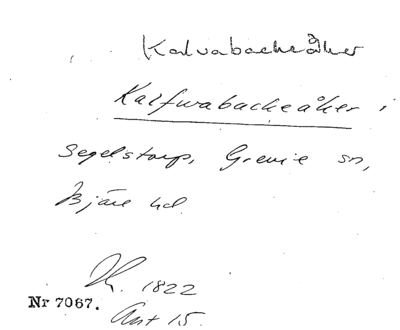 Kalvabackeåker
Kalfwabackeåker i
Segelstorp, Grevie sn,
Bjäre hd.
1822
Nr 7067.
Akt 15.